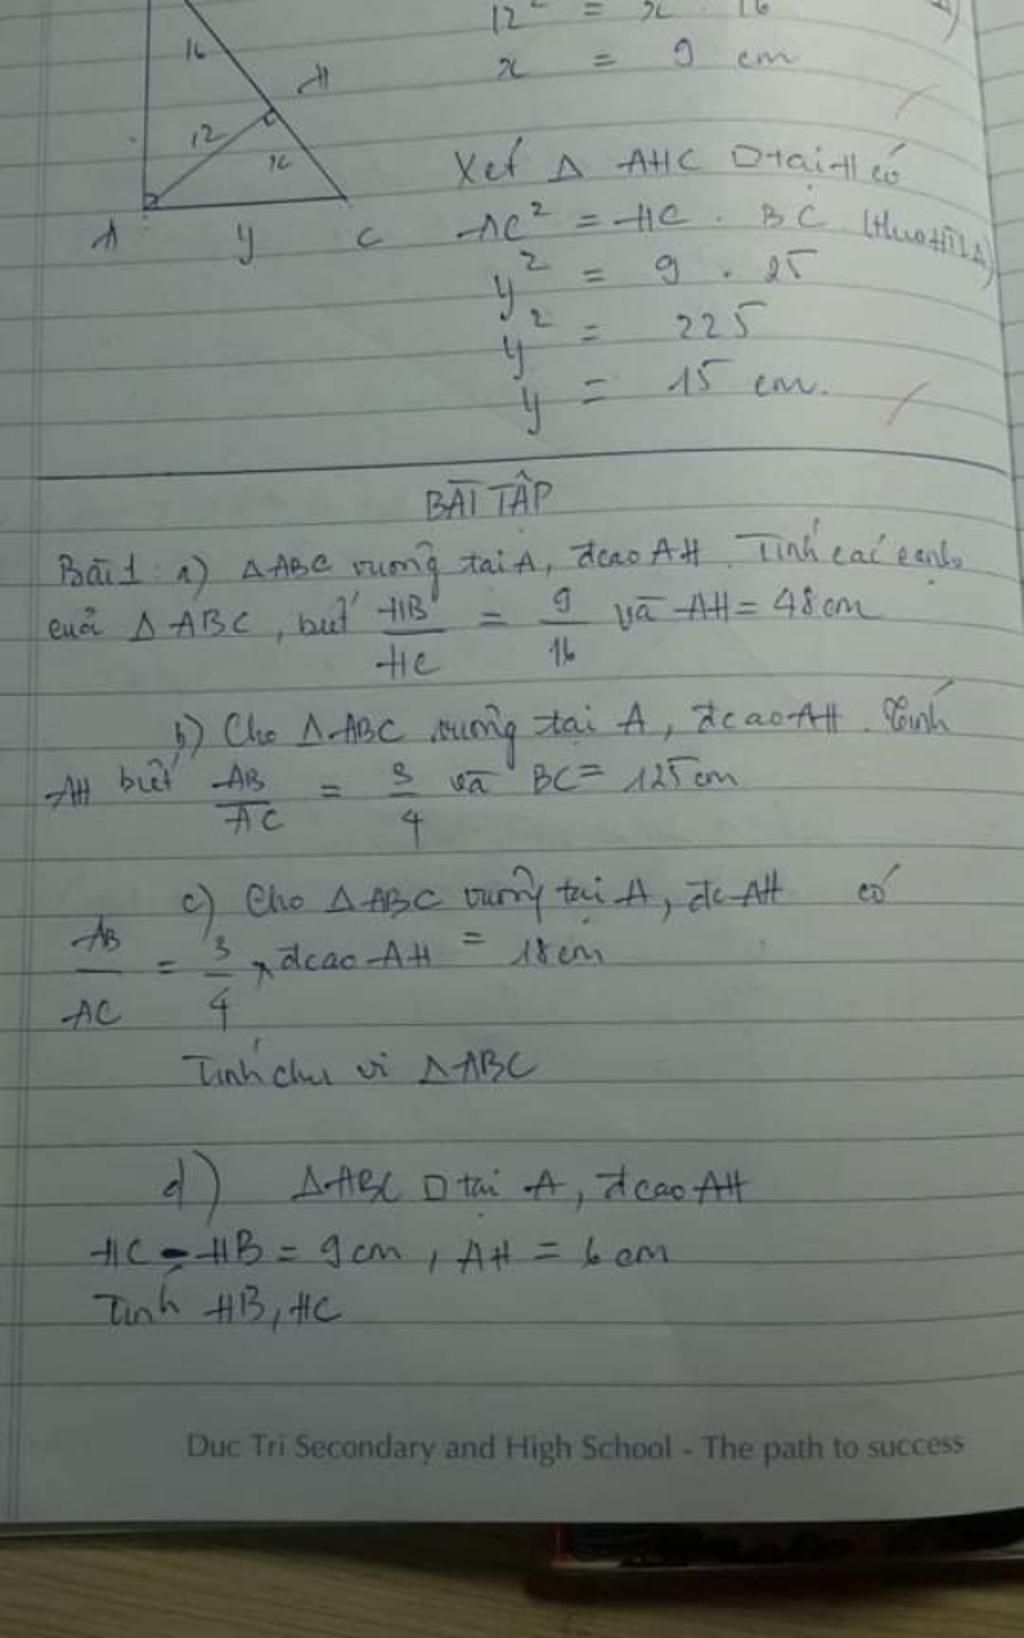 12² = x . 16
x = 9 cm
16
H
12
x
A
y
C
Xét Δ AHC □ tại H có
AC² = HC . BC (Theo HTLΔ)
y² = 9 . 25
y² = 225
y = 15 cm.
BÀI TẬP
Bài 1: a) ΔABC vuông tại A, đcao AH. Tính các cạnh
của ΔABC, biết HB/HC = 9/16 và AH = 48 cm
b) Cho ΔABC vuông tại A, đcao AH. Tính
AH biết AB/AC = 3/4 và BC = 125 cm
c) Cho ΔABC vuông tại A, đc AH có
AB/AC = 3/4, đcao AH = 18 cm
Tính chu vi ΔABC
d) ΔABC □ tại A, đcao AH
HC - HB = 9 cm, AH = 6 cm
Tính HB, HC
Duc Tri Secondary and High School - The path to success